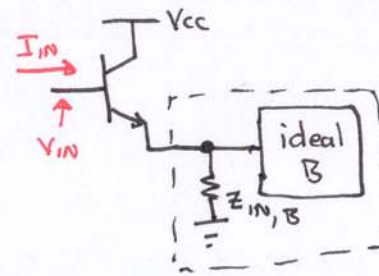 Vcc
I IN
V IN
ideal
B
Z IN, B